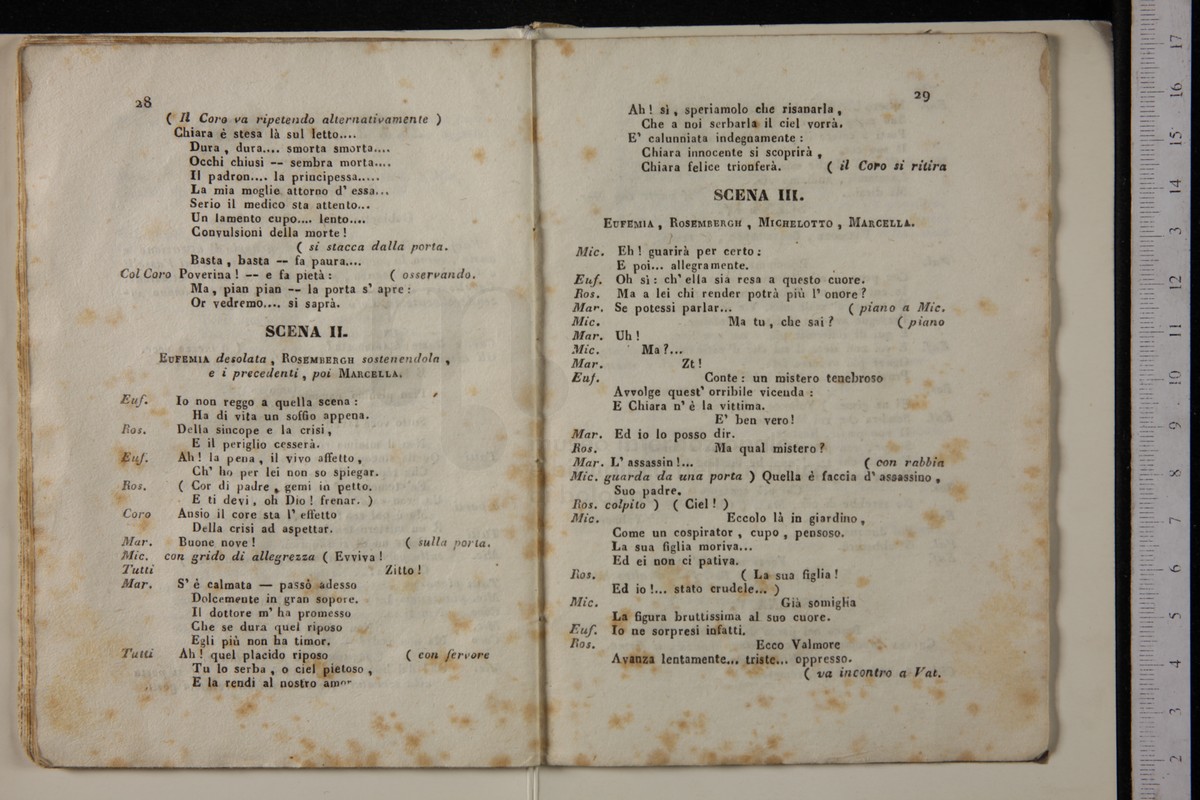 28
( Il Coro va ripetendo alternativamente )
Chiara è stesa là sul letto....
Dura , dura.... smorta smorta....
Occhi chiusi — sembra morta....
Il padron.... la principessa.....
La mia moglie attorno d' essa...
Serio il medico sta attento...
Un lamento cupo.... lento....
Convulsioni della morte !
( si stacca dalla porta.
Basta , basta — fa paura....
Col Coro Poverina ! — e fa pietà : ( osservando.
Ma , pian pian — la porta s' apre :
Or vedremo.... si saprà.
SCENA II.
EUFEMIA desolata , ROSEMBERGH sostenendola ,
e i precedenti , poi MARCELLA.
Euf. Io non reggo a quella scena :
Ha di vita un soffio appena.
Ros. Della sincope e la crisi ,
E il periglio cesserà.
Euf. Ah ! la pena , il vivo affetto ,
Ch' ho per lei non so spiegar.
Ros. ( Cor di padre , gemi in petto.
E ti devi , oh Dio ! frenar. )
Coro Ansio il core sta l' effetto
Della crisi ad aspettar.
Mar. Buone nove ! ( sulla porta.
Mic. con grido di allegrezza ( Evviva !
Tutti Zitto !
Mar. S' è calmata — passò adesso
Dolcemente in gran sopore.
Il dottore m' ha promesso
Che se dura quel riposo
Egli più non ha timor.
Tutti Ah ! quel placido riposo ( con fervore
Tu lo serba , o ciel pietoso ,
E la rendi al nostro amor
29
Ah ! sì , speriamolo che risanarla ,
Che a noi serbarla il ciel vorrà.
E' calunniata indegnamente :
Chiara innocente si scoprirà ,
Chiara felice trionferà. ( il Coro si ritira
SCENA III.
EUFEMIA , ROSEMBERGH , MICHELOTTO , MARCELLA.
Mic. Eh ! guarirà per certo :
E poi... allegramente.
Euf. Oh sì : ch' ella sia resa a questo cuore.
Ros. Ma a lei chi render potrà più l' onore ?
Mar. Se potessi parlar... ( piano a Mic.
Mic. Ma tu , che sai ? ( piano
Mar. Uh !
Mic. Ma ?...
Mar. Zt !
Euf. Conte : un mistero tenebroso
Avvolge quest' orribile vicenda :
E Chiara n' è la vittima.
E' ben vero !
Mar. Ed io lo posso dir.
Ros. Ma qual mistero ?
Mar. L' assassin !... ( con rabbia
Mic. guarda da una porta ) Quella è faccia d' assassino ,
Suo padre.
Ros. colpito ) ( Ciel ! )
Mic. Eccolo là in giardino ,
Come un cospirator , cupo , pensoso.
La sua figlia moriva...
Ed ei non ci pativa.
Ros. ( La sua figlia !
Ed io !... stato crudele... )
Mic. Già somiglia
La figura bruttissima al suo cuore.
Euf. Io ne sorpresi infatti.
Ros. Ecco Valmore
Avanza lentamente... triste... oppresso.
( va incontro a Val.
17
16
15
14
13
12
11
10
9
8
7
6
5
4
3
2